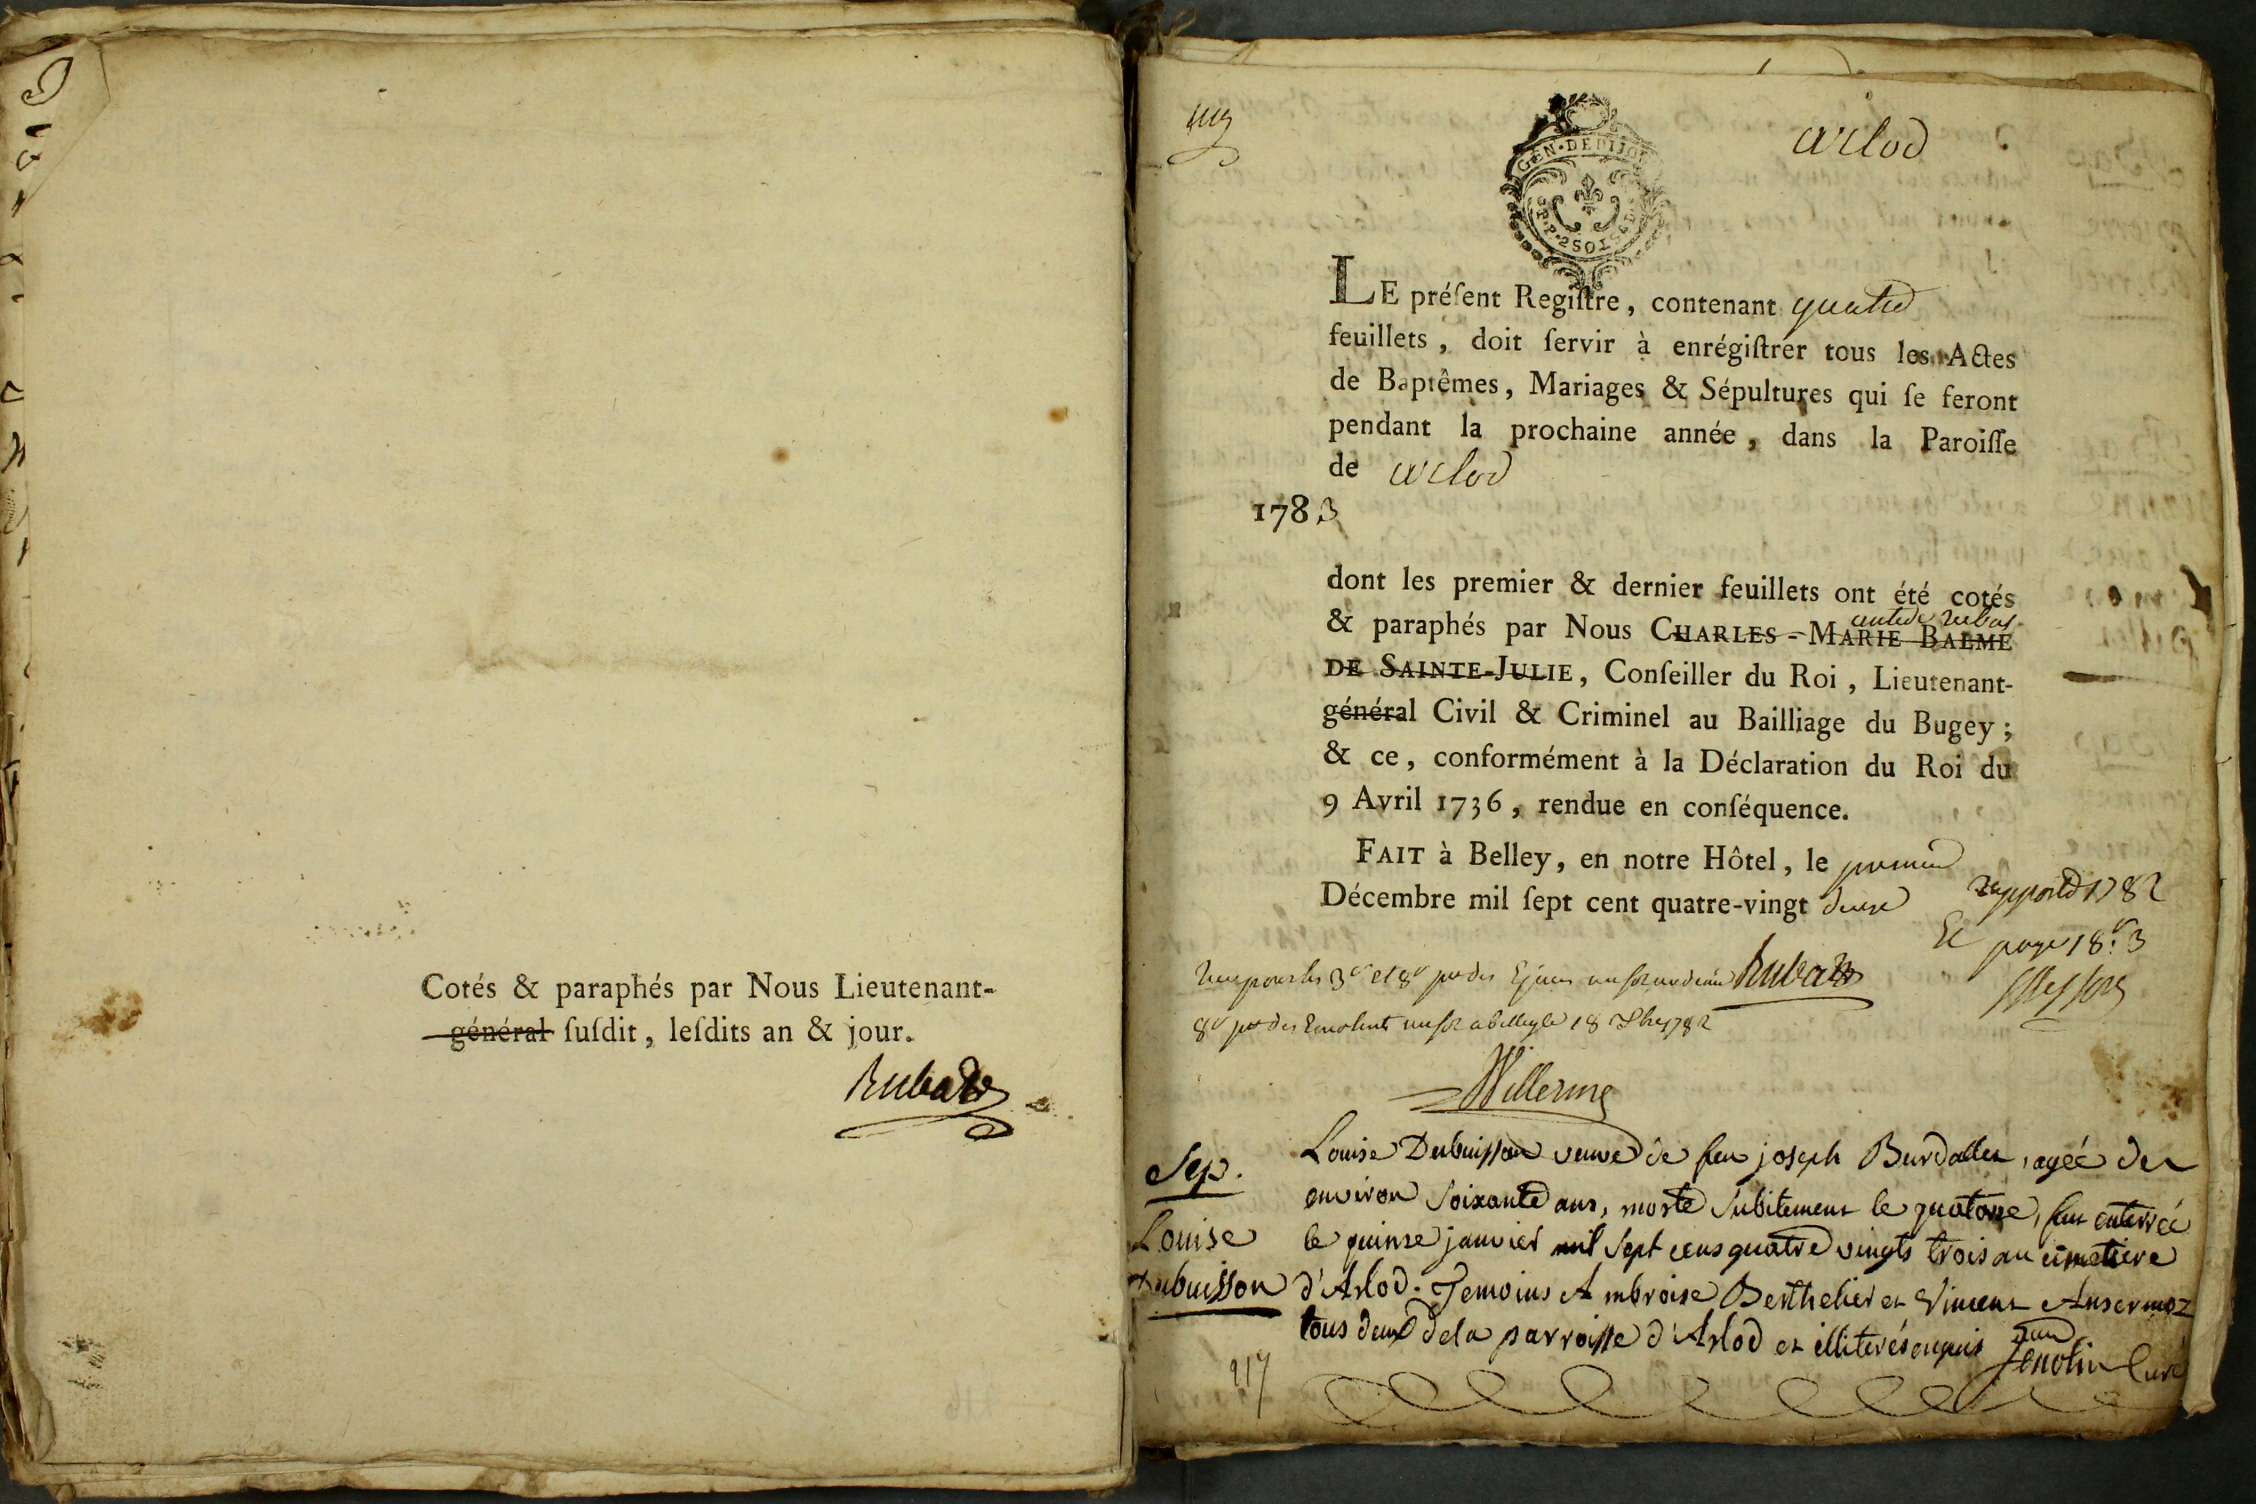 Cotés & paraphés par Nous Lieutenant-
général ſuſdit, leſdits an & jour.
Rubat
arlod
GEN·DE DIJON
LE préſent Regiſtre, contenant quatre
feuillets, doit ſervir à enrégiſtrer tous les Actes
de Baptêmes, Mariages & Sépultures qui ſe feront
pendant la prochaine année, dans la Paroiſſe
de arlod
1783
dont les premier & dernier feuillets ont été cotés
& paraphés par Nous CHARLES-MARIE BALME
DE SAINTE-JULIE, Conſeiller du Roi, Lieutenant-
général Civil & Criminel au Bailliage du Bugey;
& ce, conformément à la Déclaration du Roi du
9 Avril 1736, rendue en conſéquence.
FAIT à Belley, en notre Hôtel, le premier
Décembre mil ſept cent quatre-vingt deux
1782
Rubat
Willerme
Sep.
Louise
Dubuisson
Louise Dubuisson veuve de feu joseph Burdallet, agéé de
environ soixante ans, morte subitement le quatorze, fut enterréé
le quinze janvier mil sept cens quatre vingts trois au cimetiere
d'Arlod. Temoins Ambroise Berthelier et Vincent Ansermoz
tous deux de la parroisse d'Arlod et illiterés enquis
Jenolin Curé
217